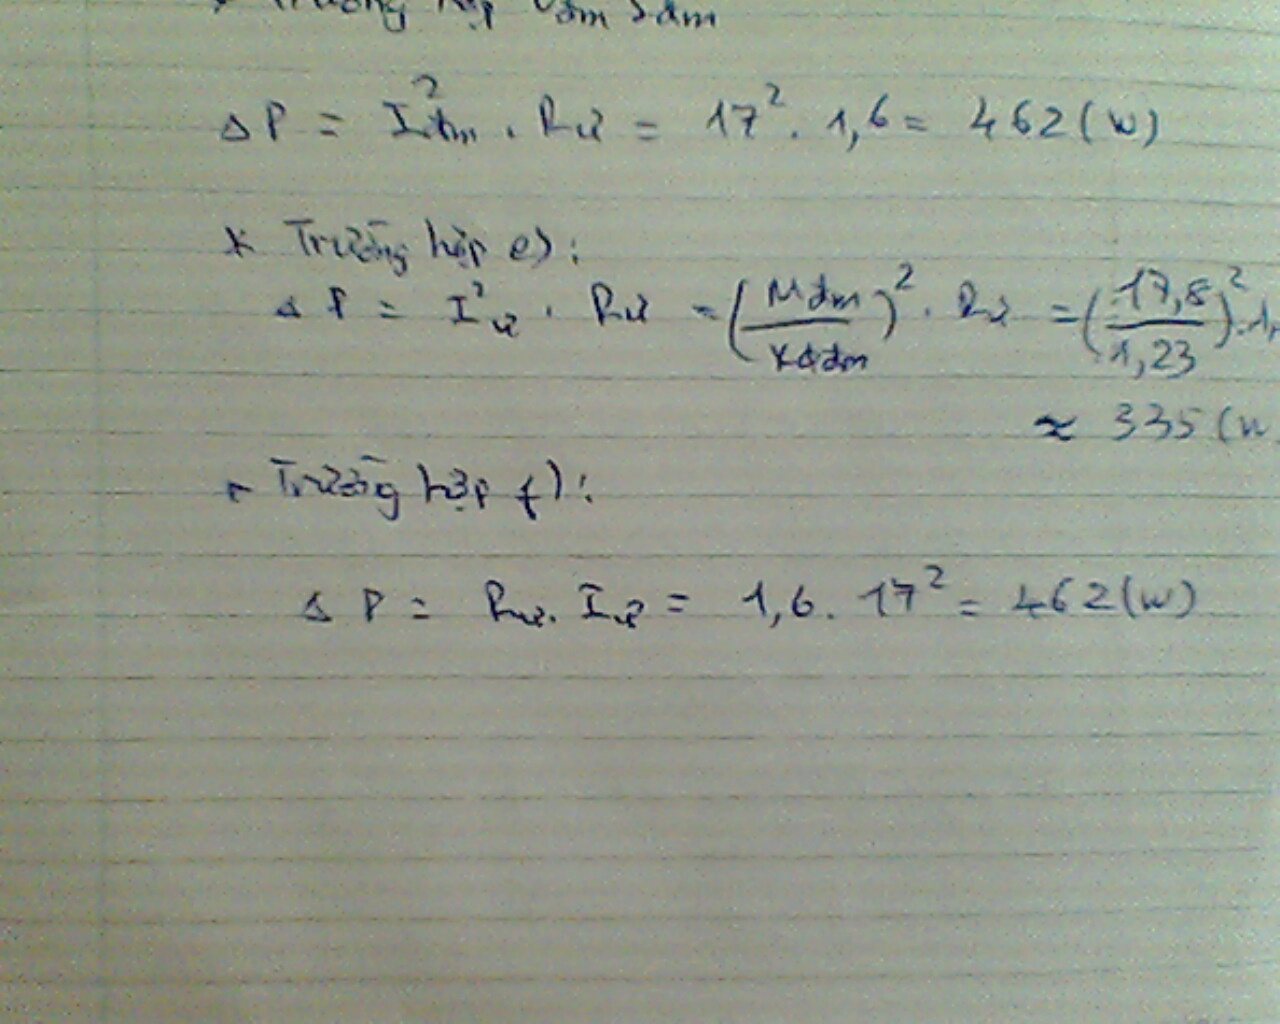 Trường hợp
ΔP = I²đm . Rư = 17² . 1,6 = 462 (W)
* Trường hợp e):
ΔP = I²ư . Rư = (Mđm / KΦđm)² . Rư = (17,8 / 1,23)² . 1,
≈ 335 (W
* Trường hợp f):
ΔP = Rư. Iư = 1,6. 17² = 462 (W)